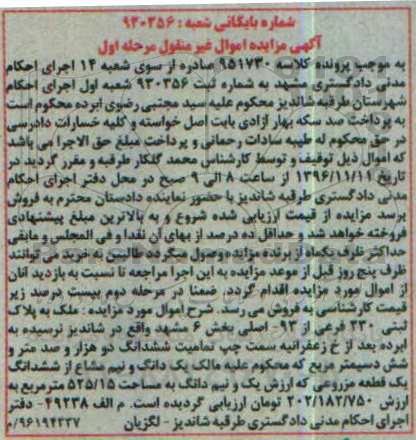 شماره بایگانی شعبه : ۹۳۰۳۵۶
آگهی مزایده اموال غیر منقول مرحله اول
به موجب پرونده کلاسه ۹۵۱۷۳۰ صادره از سوی شعبه ۱۴ اجرای احکام
مدنی دادگستری مشهد به شماره ثبت ۹۳۰۳۵۶ شعبه اول اجرای احکام
شهرستان طرقبه شاندیز محکوم علیه سید مجتبی رضوی ابرده محکوم است
به پرداخت صد سکه بهار آزادی بابت اصل خواسته و کلیه خسارات دادرسی
در حق محکوم له طیبه سادات رحمانی و پرداخت مبلغ حق الاجرا می باشد
که اموال ذیل توقیف و توسط کارشناس محمد گلکار طرقبه و مقرر گردید در
تاریخ ۱۳۹۶/۱۱/۱۱ از ساعت ۸ الی ۹ صبح در محل دفتر اجرای احکام
مدنی دادگستری طرقبه شاندیز با حضور نماینده دادستان محترم به فروش
برسد مزایده از قیمت ارزیابی شده شروع و به بالاترین مبلغ پیشنهادی
فروخته خواهد شد و حداقل ده درصد از بهای آن نقدا و فی المجلس و مابقی
حداکثر ظرف یکماه از برنده مزایده وصول میگردد طالبین به خرید می توانند
ظرف پنج روز قبل از موعد مزایده به این اجرا مراجعه تا نسبت به بازدید آنان
از اموال مورد مزایده اقدام گردد، ضمنا در مرحله دوم بیست درصد زیر
قیمت کارشناسی به فروش می رسد. شرح اموال مورد مزایده : ملک به پلاک
ثبتی ۲۳۰ فرعی از ۹۳- اصلی بخش ۶ مشهد واقع در شاندیز نرسیده به
ابرده بعد از خ زعفرانیه سمت چپ تمامیت ششدانگ دو هزار و صد متر و
شش دسیمتر مربع که محکوم علیه مالک یک دانگ و نیم مشاع از ششدانگ
یک قطعه مزروعی که ارزش یک و نیم دانگ به مساحت ۵۲۵/۱۵ مترمربع به
ارزش ۲۰۲/۱۸۲/۷۵۰ تومان ارزیابی گردیده است. م الف ۴۹۲۳۸- دفتر
اجرای احکام مدنی دادگستری طرقبه شاندیز - لگزیان ۹۶۱۹۴۲۳۷/م